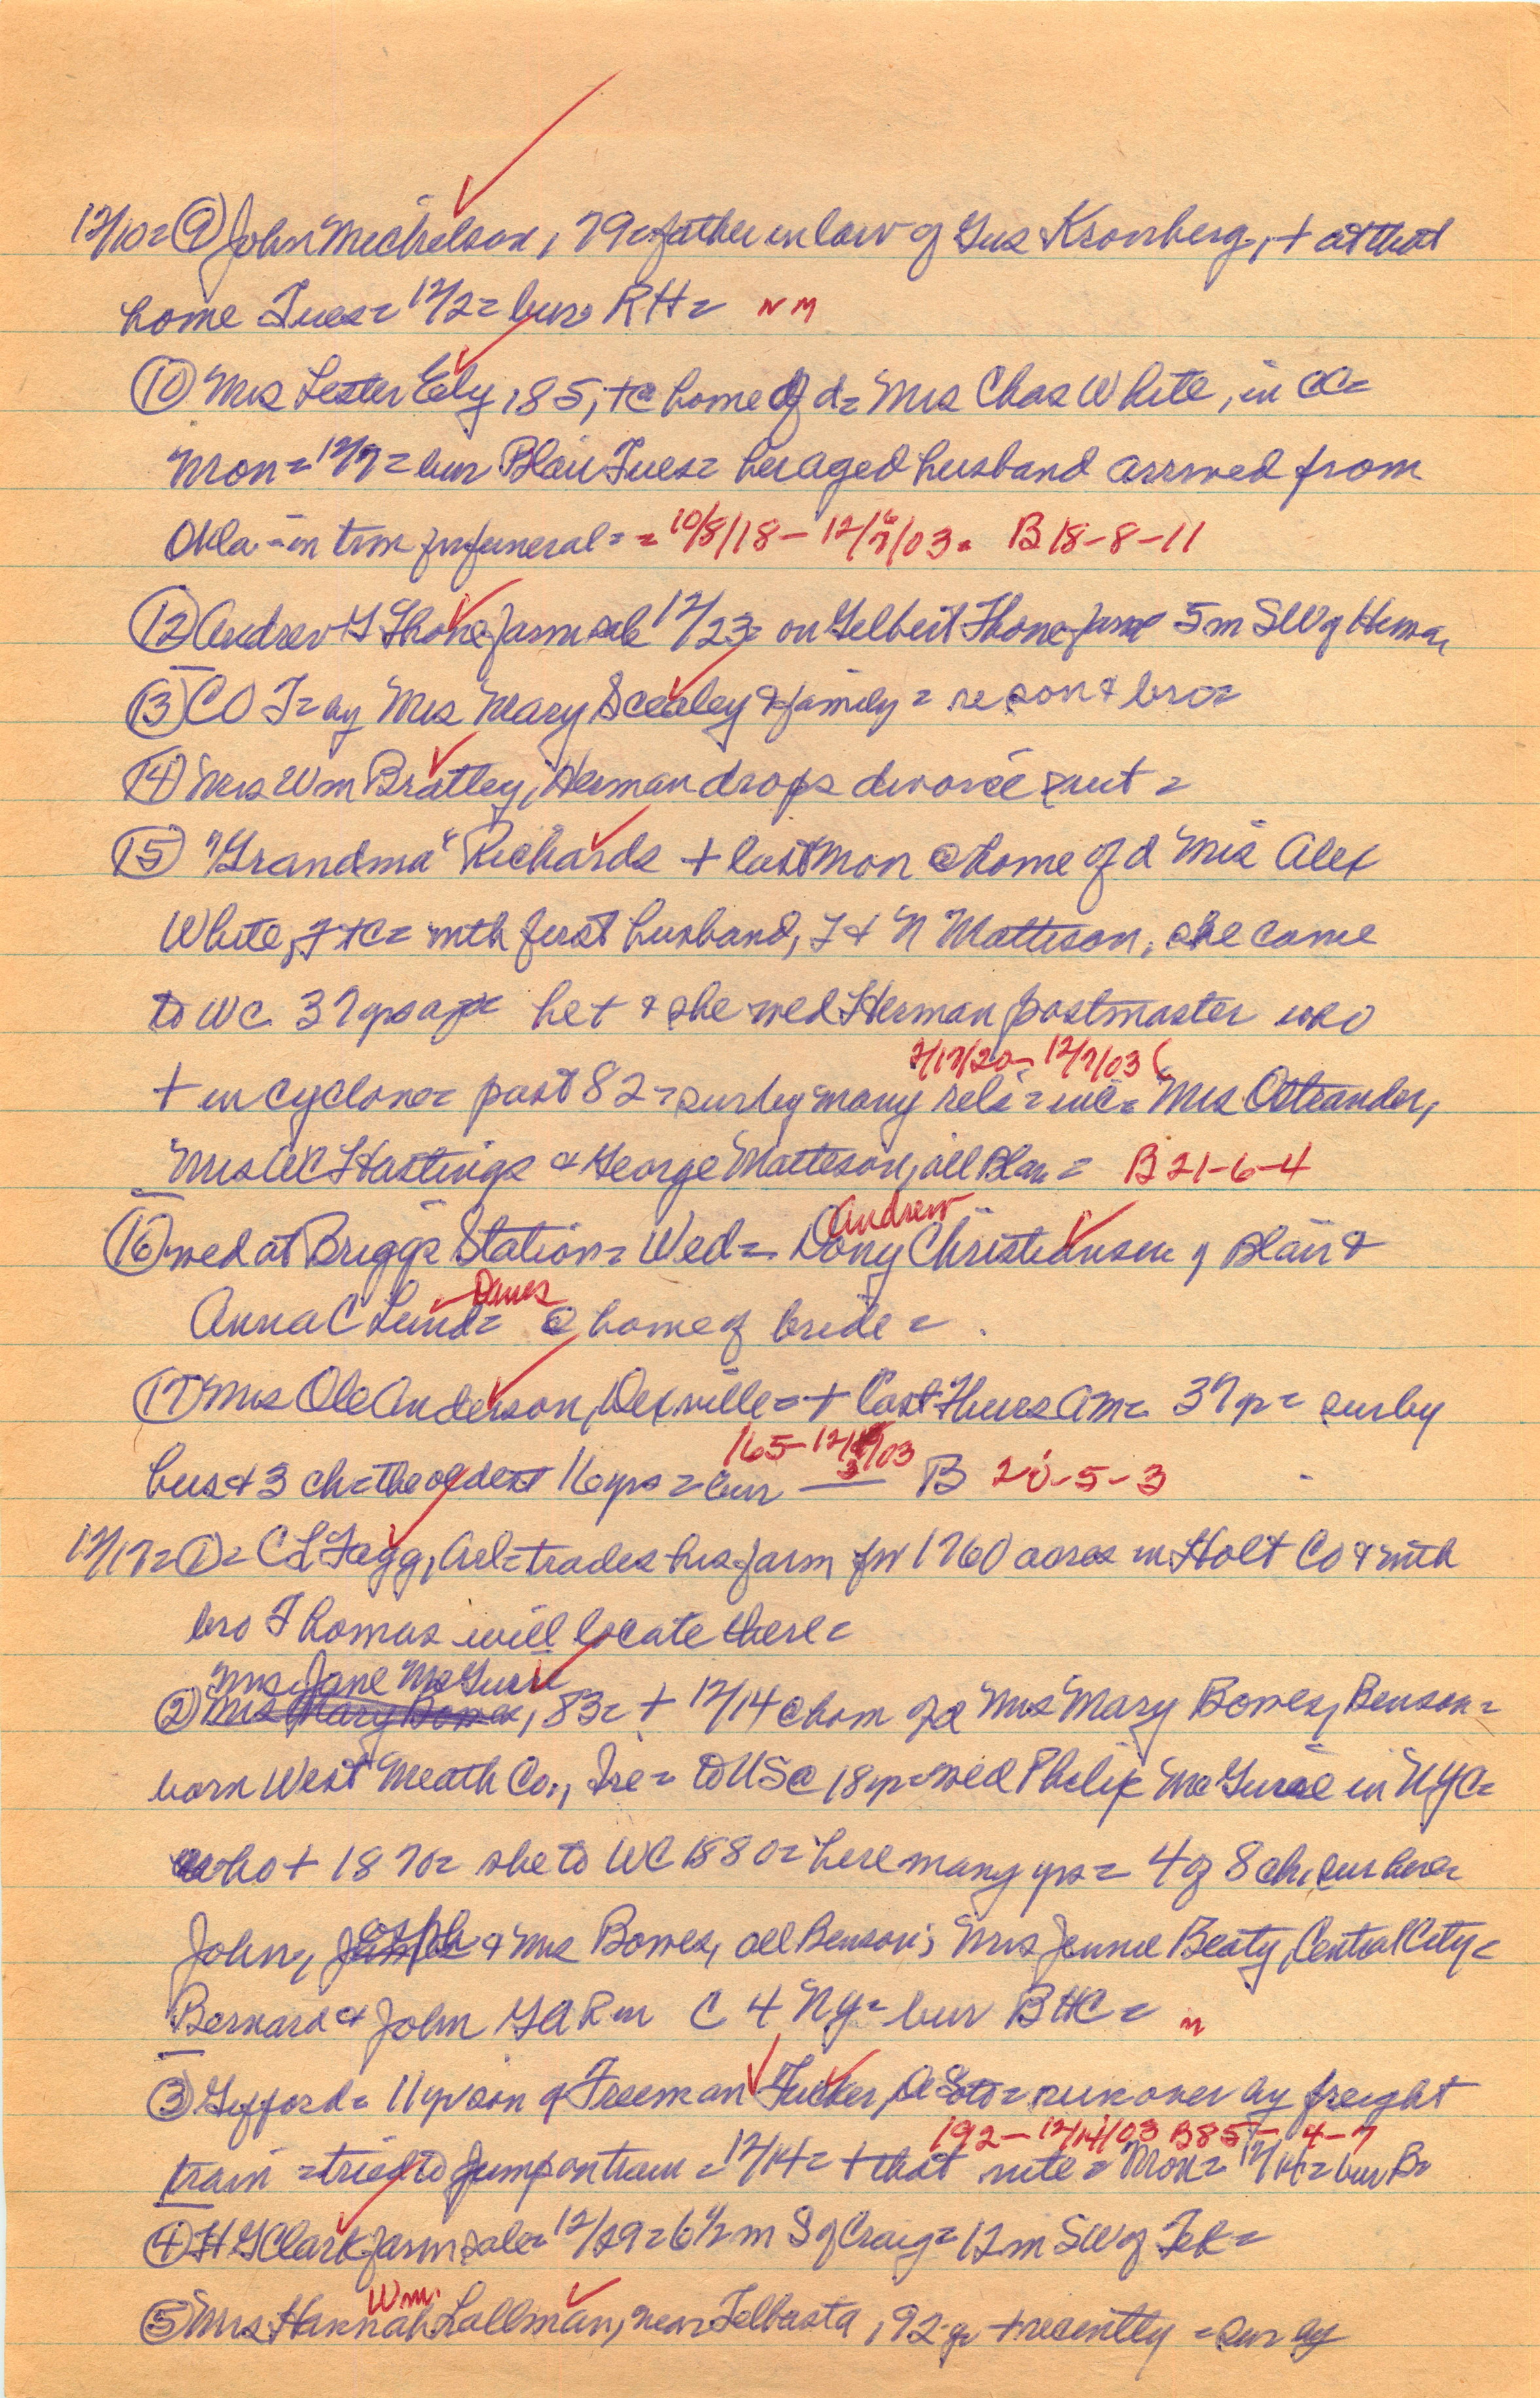 12/10= (9) John Michelson, 79= father in law of Gus Kronberg, + at that
home Tues= 12/2= bur RH= NM
(10) Mrs Lester Ely, 85, + @ home of d= Mrs Chas White, in
Mon= 12/7= bur Blair Tues= her aged husband arrived from
Okla - in time for funeral= = 10/8/18 - 12/7/03= B 18-8-11
(12) Andrew G Thone farm sale 12/23= on Gelbert Thone farm 5 m SW of Herman
(13) C O T= by Mrs Mary & family= re son & bro=
(14) Mrs Wm Bratley, Herman drops divorce suit=
(15) "Grandma" Richards + last Mon @ home of d Mrs Alex
White, = with first husband, N Matteson, she came
to WC 37 yrs ago he + & she wed Herman postmaster who
2/17/20- 12/7/03 (
+ in cyclone= past 82= sur by many rels= inc= Mrs Ostrander,
Mrs WC Hastings & George Matteson, all Blair= B 21-6-4
Andrew
(16) wed at Briggs Station= Wed= Dony Christiansen of Blair &
Danes
Anna C Lund= @ home of bride=
(17) Mrs Ole Anderson, Dexville= + last Thurs AM= 37 yr= sur by
165- 12/3/03
hus & 3 ch= the oldest 16 yrs= bur — B 20-5-3
12/17= (1)= C L Fagg, Arl= trades his farm for 1760 acres in Holt Co & with
bro Thomas will locate there=
Mrs Jane McGuire
(2) Mrs Mary Bowes, 83= + 12/14 @ hom of d Mrs Mary Bowes, Benson=
born West Meath Co., Ire= to US @ 18 yr= wed Philip McGuire in NYC=
who + 1870= she to WC 1880= here many yrs= 4 of 8 ch, sur here=
John, Joseph & Mrs Bowes, all Benson; Mrs Jennie Beaty, Central City=
Bernard & John GAR in C 4 NY= bur BHC= n
(3) Gifford= 11 yr son of Freeman Tucker, DeSoto= run over by freight
192- 12/14/03 B85- 4-7
train= tried to jump on train= 12/14= + that nite= Mon= 12/14= bur B=
(4) H G Clark farm sale= 12/29= 6 1/2 m S of Craig= 12 m SW of Tek=
Wm.
(5) Mrs Hannah Lallman, near Telbasta, 92 yr + recently= sur by